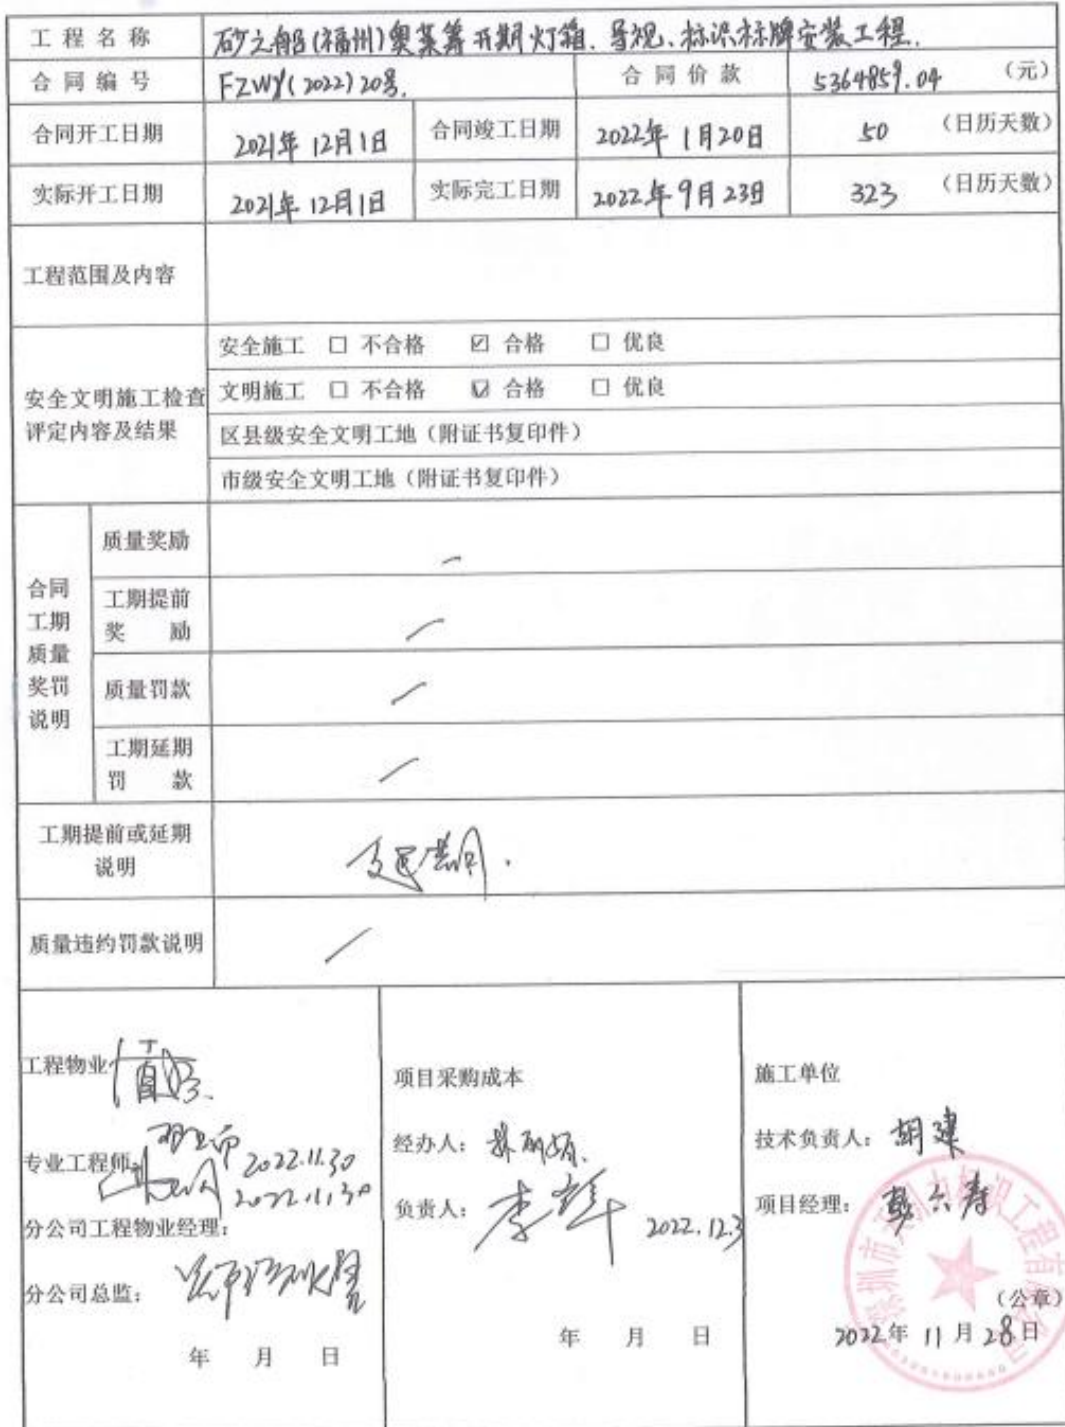 工程名称 砂之船(福州)奥莱筹开期灯箱、导视、标识标牌安装工程.
合同编号 FZWY(2022)20号. 合同价款 5364859.04 (元)
合同开工日期 2021年12月1日 合同竣工日期 2022年1月20日 50 (日历天数)
实际开工日期 2021年12月1日 实际完工日期 2022年9月23日 323 (日历天数)
工程范围及内容
安全文明施工检查
评定内容及结果
安全施工 □ 不合格 ☑ 合格 □ 优良
文明施工 □ 不合格 ☑ 合格 □ 优良
区县级安全文明工地（附证书复印件）
市级安全文明工地（附证书复印件）
合同
工期
质量
奖罚
说明
质量奖励
工期提前
奖励
质量罚款
工期延期
罚款
工期提前或延期
说明
质量违约罚款说明
工程物业
专业工程师: 2022.11.30
2022.11.30
分公司工程物业经理:
分公司总监:
年 月 日
项目采购成本
经办人:
负责人: 李 2022.12.3
年 月 日
施工单位
技术负责人: 胡建
项目经理:
(公章)
2022年11月28日